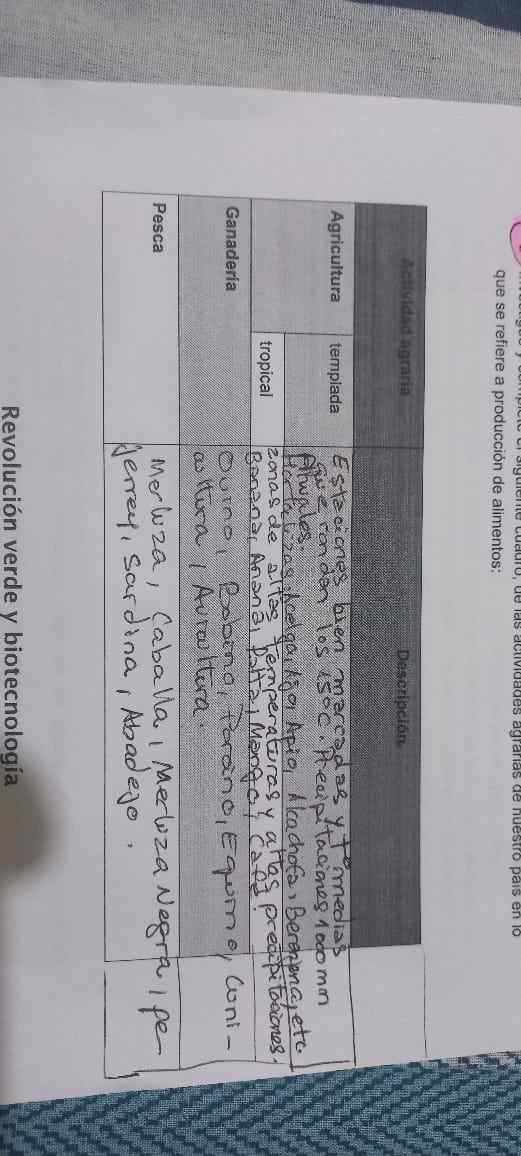 siguiente cuadro, de las actividades agrarias de nuestro país en lo
que se refiere a producción de alimentos:
Actividad agraria
Descripción
Agricultura
templada
Estaciones bien marcadas y tº medias
que rondan los 15ºC. Precipitaciones 1000 mm
Anuales.
Hortalizas, Acelga, Ajo, Apio, Alcachofa, Berenjena, etc
tropical
zonas de altas temperaturas y altas precipitaciones.
Banana, Ananá, Palta, Mango, Café.
Ganadería
Ovino, Bovino, Porcino, Equino, Cuni-
cultura, Avicultura.
Pesca
Merluza, Caballa, Merluza Negra, pe-
jerrey, Sardina, Abadejo.
Revolución verde y biotecnología